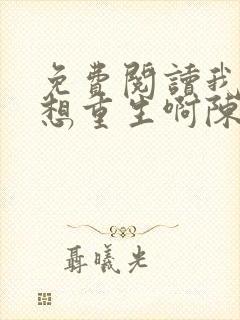 免費閱讀我
想重生啊陳
聶曦光